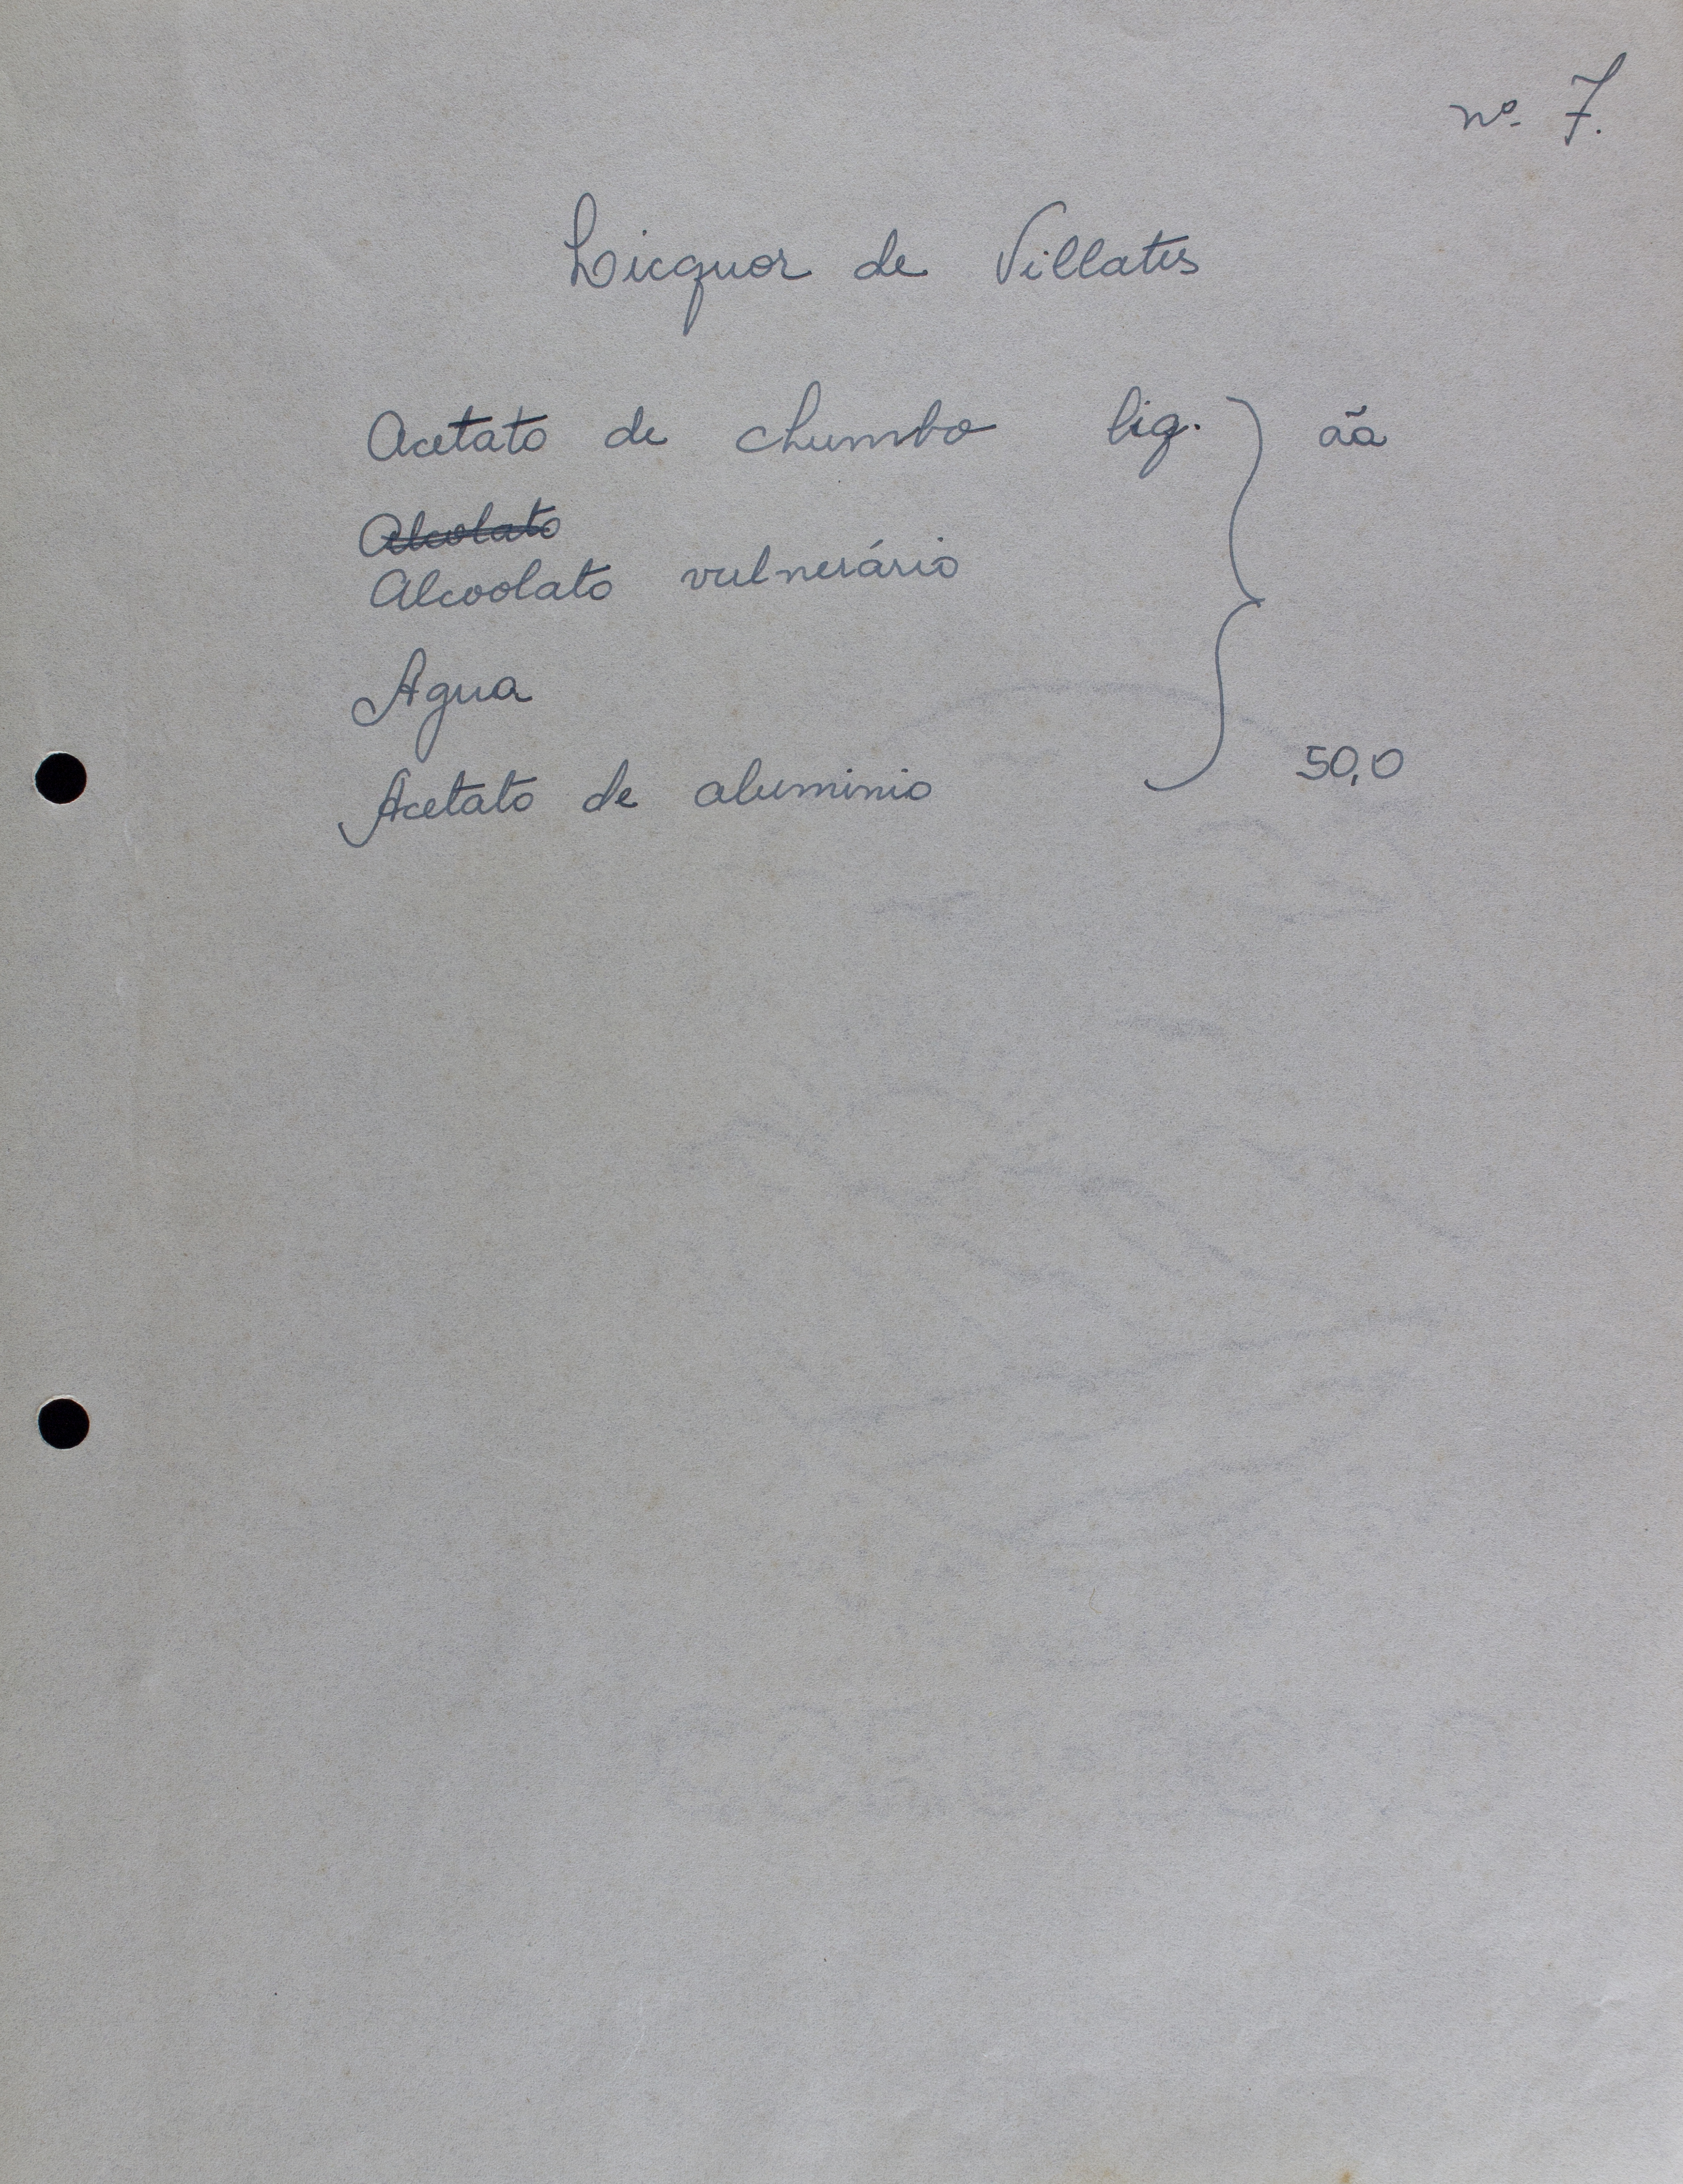 nº 7.
Licquor de Villates
Acetato de chumbo liq. } ãa
Alcolato
Alcoolato vulnerário
Agua
Acetato de aluminio 50,0